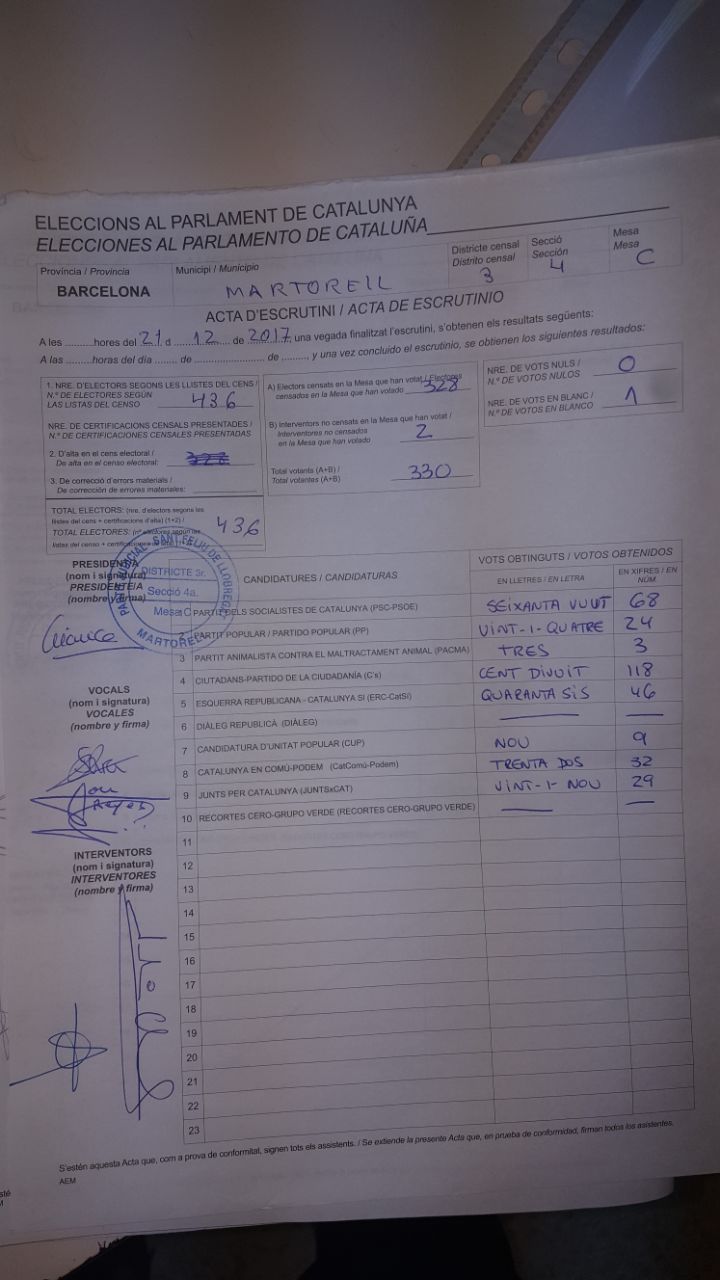 ELECCIONS AL PARLAMENT DE CATALUNYA
ELECCIONES AL PARLAMENTO DE CATALUÑA
Província / Provincia
BARCELONA
Municipi / Municipio
MARTORELL
Districte censal
Distrito censal
3
Secció
Sección
4
Mesa
Mesa
C
ACTA D'ESCRUTINI / ACTA DE ESCRUTINIO
A les .........hores del 21 d ...12... de 2017, una vegada finalitzat l'escrutini, s'obtenen els resultats següents:
A las .........horas del día ....... de ........................ de ........, y una vez concluido el escrutinio, se obtienen los siguientes resultados:
1. NRE. D'ELECTORS SEGONS LES LLISTES DEL CENS /
N.º DE ELECTORES SEGÚN
LAS LISTAS DEL CENSO
436
NRE. DE CERTIFICACIONS CENSALS PRESENTADES /
N.º DE CERTIFICACIONES CENSALES PRESENTADAS
2. D'alta en el cens electoral /
De alta en el censo electoral:
3. De correcció d'errors materials /
De corrección de errores materiales:
TOTAL ELECTORS: (nre. d'electors segons les
llistes del cens + certificacions d'alta) (1+2) /
TOTAL ELECTORES: (nº electores según las
listas del censo + certificaciones
436
A) Electors censats en la Mesa que han votat / Electores
censados en la Mesa que han votado
328
B) Interventors no censats en la Mesa que han votat /
Interventores no censados
en la Mesa que han votado
2
Total votants (A+B) /
Total votantes (A+B)
330
NRE. DE VOTS NULS /
N.º DE VOTOS NULOS
0
NRE. DE VOTS EN BLANC /
N.º DE VOTOS EN BLANCO
1
PRESIDENT/A
(nom i signatura)
PRESIDENTE/A
(nombre y firma)
PART. JUDICIAL SANT FELIU DE LLOBREGAT
DISTRICTE 3r.
Secció 4a.
Mesa: C
MARTORELL
CANDIDATURES / CANDIDATURAS
VOTS OBTINGUTS / VOTOS OBTENIDOS
EN LLETRES / EN LETRA
EN XIFRES / EN NÚM.
PARTIT DELS SOCIALISTES DE CATALUNYA (PSC-PSOE) SEIXANTA VUUT 68
2 PARTIT POPULAR / PARTIDO POPULAR (PP) VINT-I-QUATRE 24
3 PARTIT ANIMALISTA CONTRA EL MALTRACTAMENT ANIMAL (PACMA) TRES 3
4 CIUTADANS-PARTIDO DE LA CIUDADANÍA (C's) CENT DIVUIT 118
5 ESQUERRA REPUBLICANA - CATALUNYA SI (ERC-CatSí) QUARANTA SIS 46
6 DIÀLEG REPUBLICÀ (DIÀLEG) —
7 CANDIDATURA D'UNITAT POPULAR (CUP) NOU 9
8 CATALUNYA EN COMÚ-PODEM (CatComú-Podem) TRENTA DOS 32
9 JUNTS PER CATALUNYA (JUNTSxCAT) VINT-I-NOU 29
10 RECORTES CERO-GRUPO VERDE (RECORTES CERO-GRUPO VERDE) —
11
12
13
14
15
16
17
18
19
20
21
22
23
VOCALS
(nom i signatura)
VOCALES
(nombre y firma)
INTERVENTORS
(nom i signatura)
INTERVENTORES
(nombre y firma)
S'estén aquesta Acta que, com a prova de conformitat, signen tots els assistents. / Se extiende la presente Acta que, en prueba de conformidad, firman todos los asistentes.
AEM